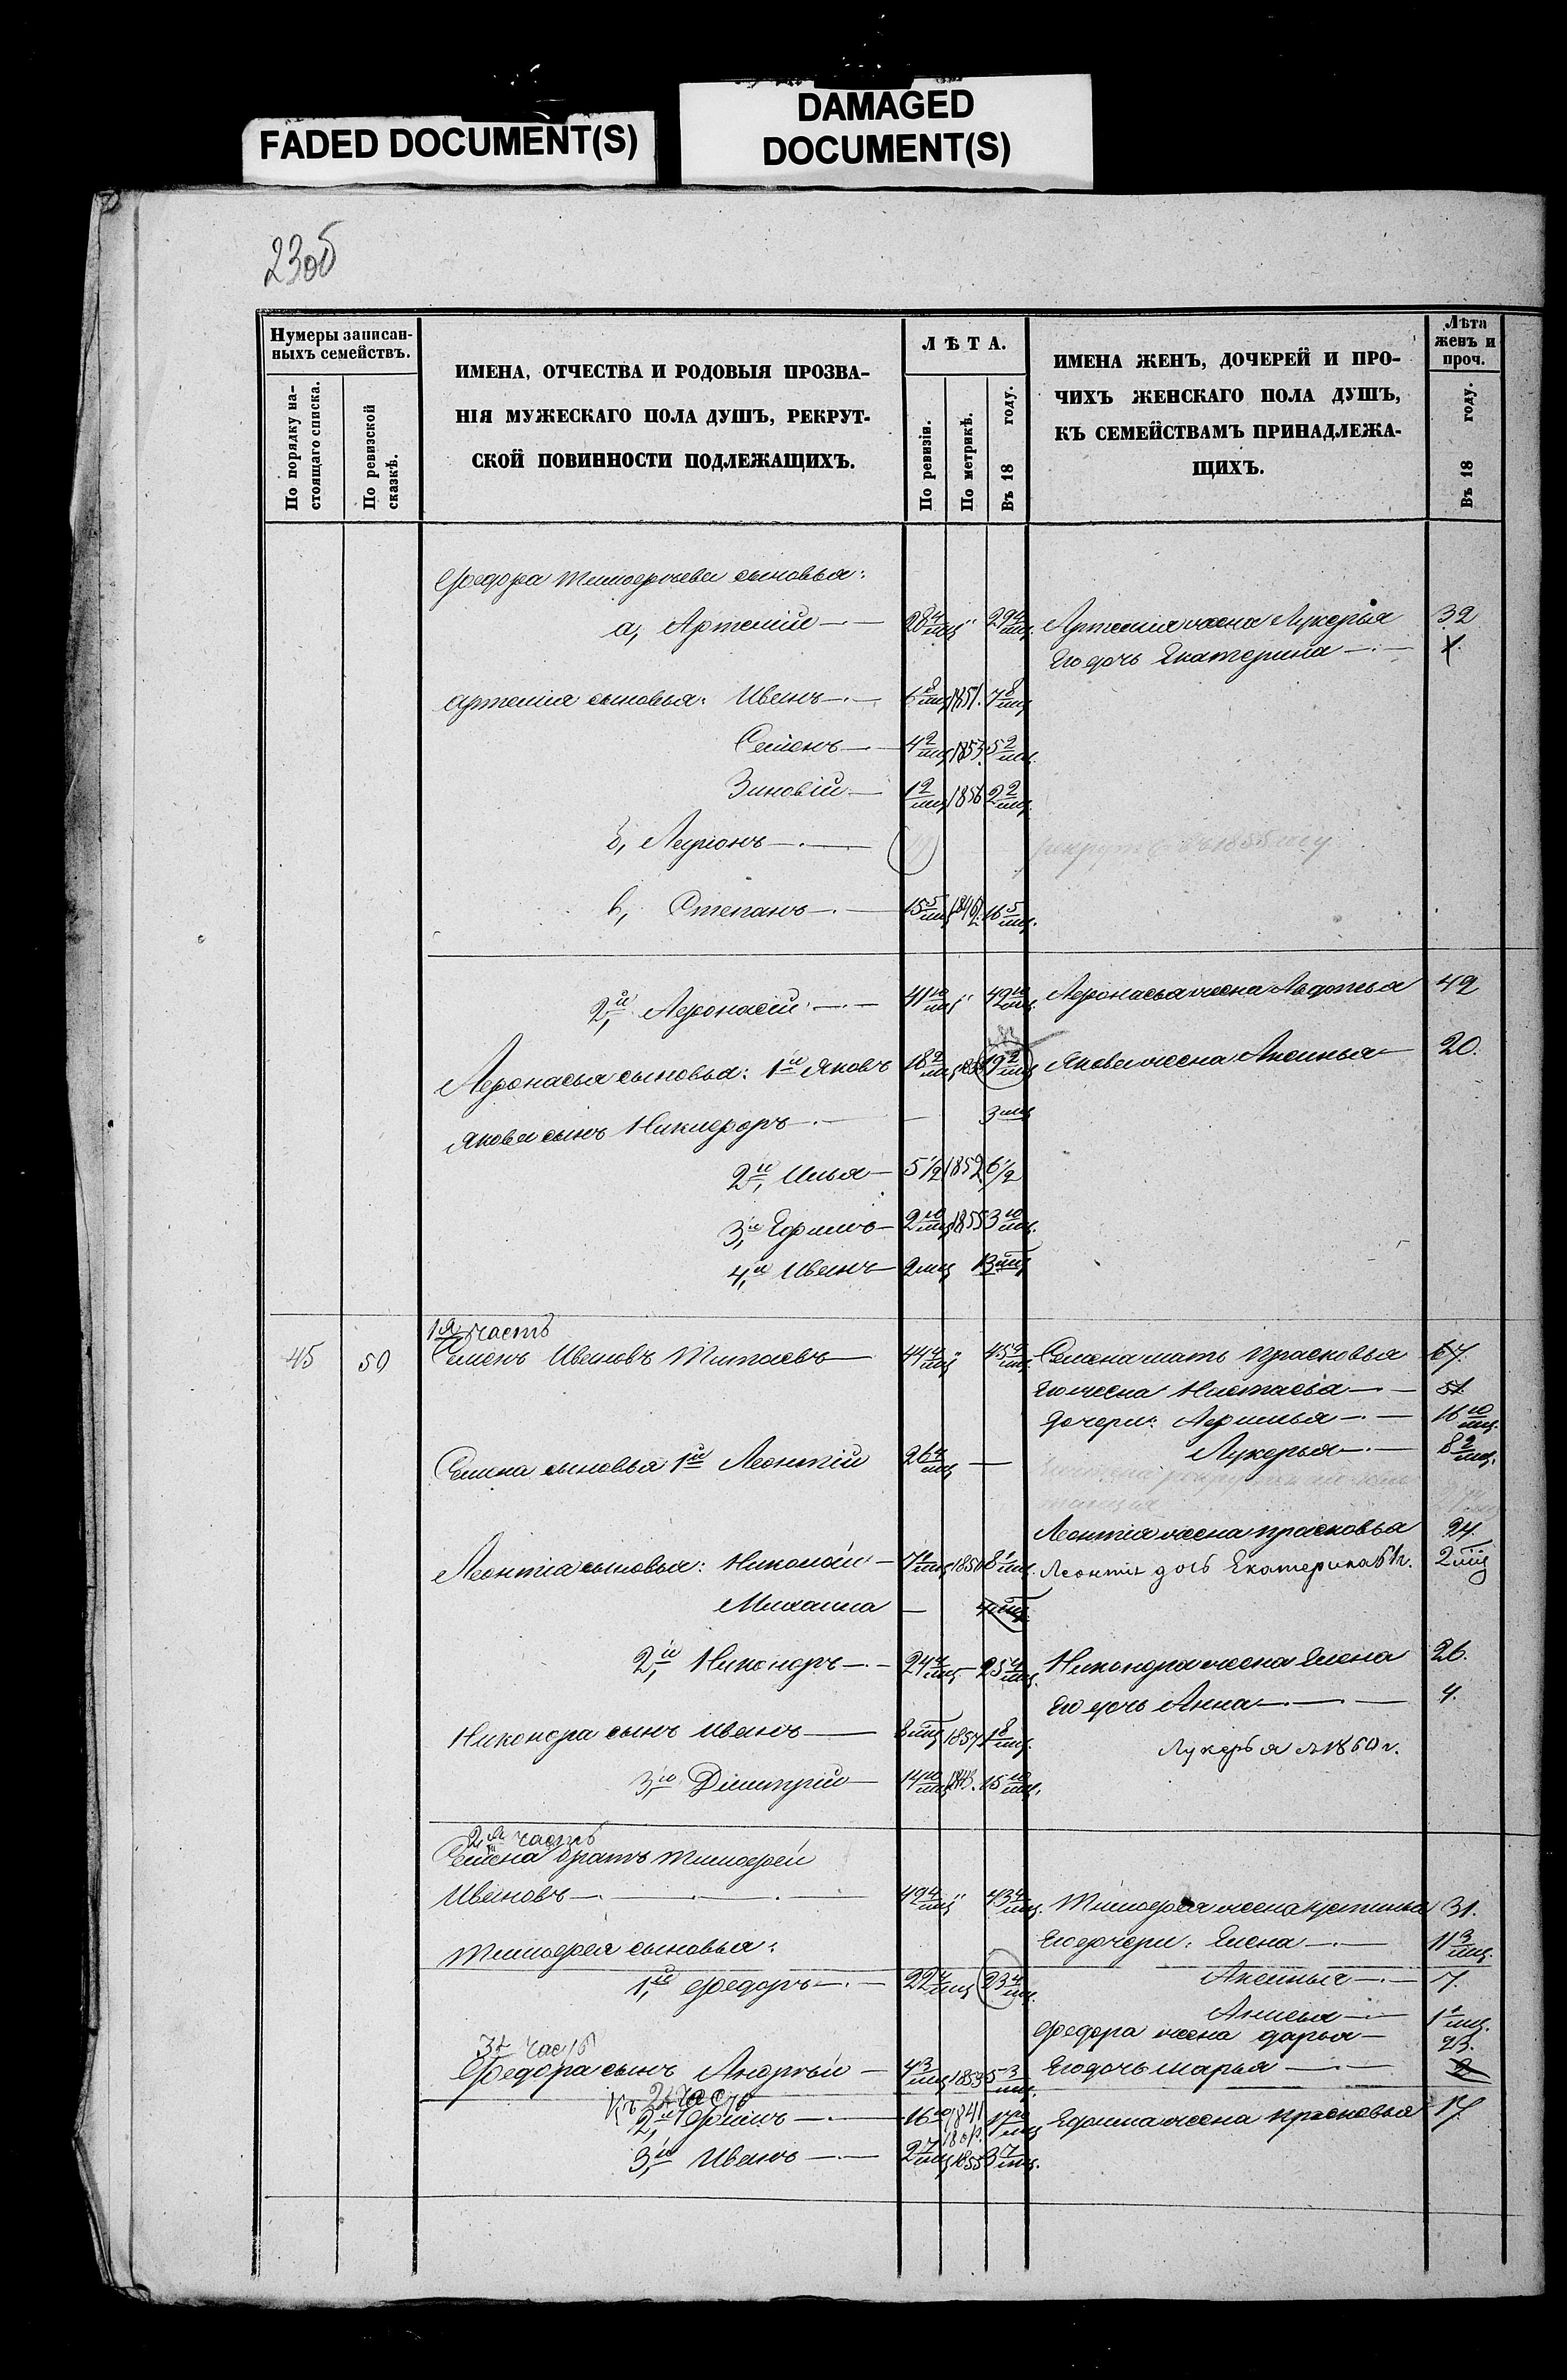 FADED DOCUMENT(S)
DAMAGED
DOCUMENT(S)
23об
Нумеры записан-
ныхъ семействъ.
По порядку на-
стоящаго списка.
По ревизской
сказкѣ.
ИМЕНА, ОТЧЕСТВА И РОДОВЫЯ ПРОЗВА-
НІЯ МУЖЕСКАГО ПОЛА ДУШЪ, РЕКРУТ-
СКОЙ ПОВИННОСТИ ПОДЛЕЖАЩИХЪ.
ЛѢТА.
По ревизіи.
По метрикѣ.
Въ 18 году.
ИМЕНА ЖЕНЪ, ДОЧЕРЕЙ И ПРО-
ЧИХЪ ЖЕНСКАГО ПОЛА ДУШЪ,
КЪ СЕМЕЙСТВАМЪ ПРИНАДЛЕЖА-
ЩИХЪ.
Лѣта
женъ и
проч.
Въ 18 году.
Федора Тимофѣева сыновья:
а, Артемій 28 4/мц " 29 4/мц. Артемія жена Лукерья 32
Его дочь Екатерина
Артемія сыновья: Иванъ 6 8/мц 1851. 7 8/мц
Семенъ 4 2/мц 1853. 5 2/мц.
Зиновій 1 2/мц 1856 2 2/мц.
б, Ларіонъ рекрутъ въ 1855 году
в, Степанъ 15 5/мц 16 5/мц.
2й, Афонасій 41 10/мц " 42 10/мц. Афонасья жена Авдотья 42
Афонасья сыновья: 1й Яковъ 18 2/мц 19 2/мц Якова жена Аксинья 20.
Якова сынъ Никифоръ — 3 мц
2й, Илья 5 1/2 1852 6 1/2
3й, Ефимъ 2 10/мц 1855 3 10/мц.
4й, Иванъ 2 мц
1я часть
45 50 Семенъ Ивановъ Титаевъ 44 4/мц " 45 4/мц. Семена мать Прасковья 67.
Его жена Настасья 51
Дочери: Афимья 16 10/мц.
Лукерья 8 2/мц.
Семена сыновья 1й Леонтій 26 4/мц —
Леонтія жена Прасковья 24.
Леонтія сыновья: Николай 1850 Леонтія дочь Екатерина 2 мц
Михаила —
2й, Никондръ 24 4/мц — 25 4/мц. Никондра жена Елена 26.
Его дочь Анна 4.
Никондра сынъ Иванъ 8 мц 1857 1 8/мц.
Лукерья 1860 г.
3й, Дімитрій 14 10/мц 1843. 15 10/мц.
2я часть
Семена братъ Тимофей
Ивановъ 42 4/мц " 43 4/мц. Тимофея жена Устинья 31.
Тимофея сыновья: Его дочери: Елена 11 9/мц.
1й, Федоръ 22 4/мц 23 4/мц. Аксинья 7.
Анисья
Федора жена Дарья 23.
3я часть
Федора сынъ Андрей 4 3/мц 1853 5 3/мц. Его дочь Марья 2
Къ 2 части
2й, Ефимъ 16 10/мц 1841 17 10/мц Ефима жена Прасковья 17.
3й, Иванъ 2 7/мц 1855 3 7/мц.